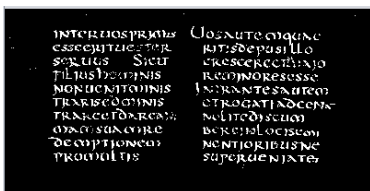 INTERUOSPRIMUS
ESSEERITUESTER
SERUUS SICUT
FILIUSHOMINIS
NONUENITMINIS
TRARISEDMINIS
TRAREETDAREANI
MAMSUAMRE
DEMPTIONEM
PROMULTIS
UOSAUTEMQUAE
RITISDEPUSILLO
CRESCEREETMAIO
REMINORESESSE
INTRANTESAUTEM
ETROGATIADCENA
NOLITEDISCUM
BEREINLOCISEMI
NENTIORIBUSNE